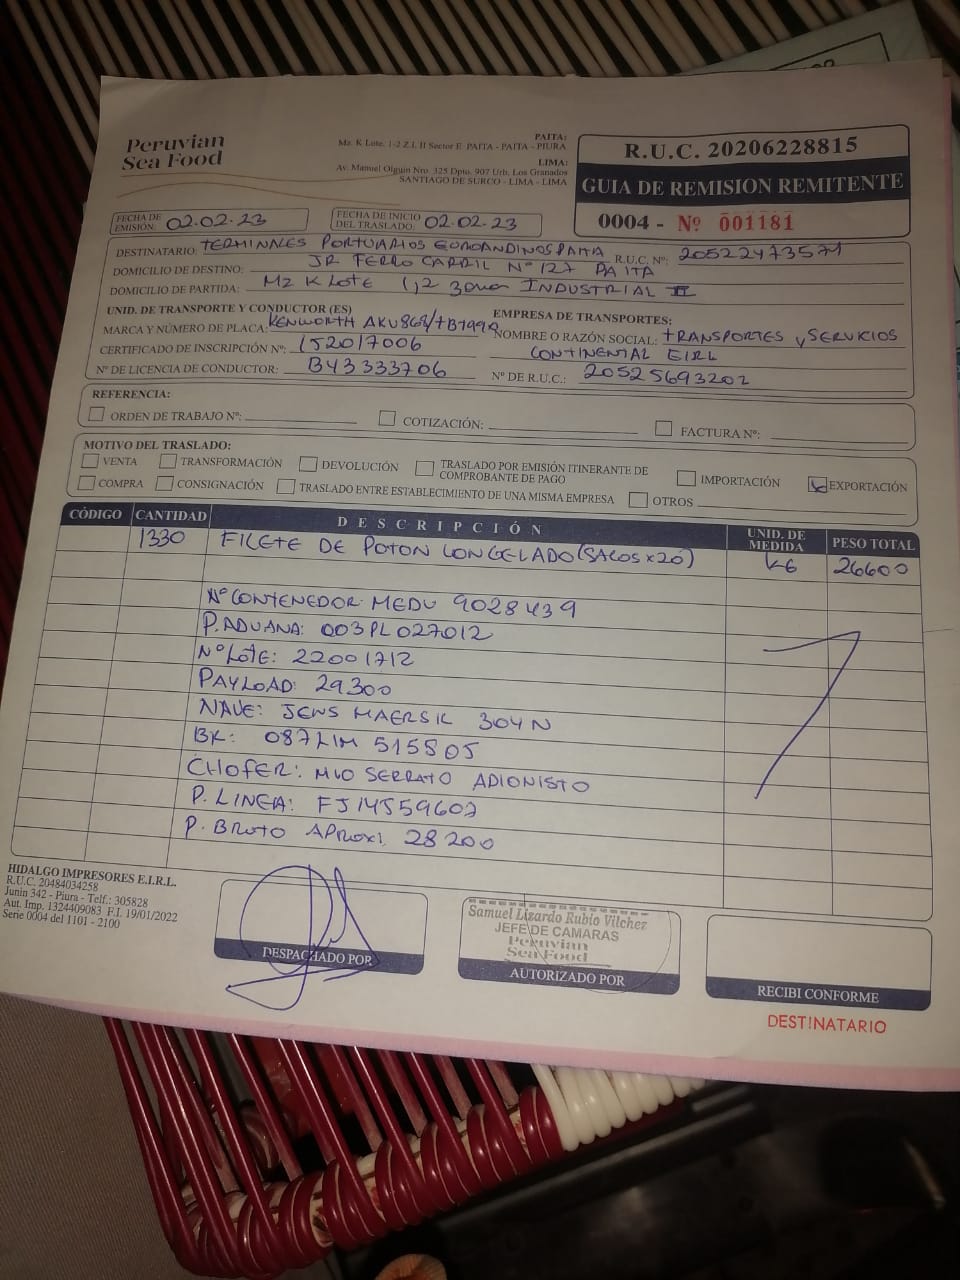 Peruvian
Sea Food
PAITA:
Mz. K Lote. 1-2 Z.I. II Sector E PAITA - PAITA - PIURA
LIMA:
Av. Manuel Olguin Nro. 325 Dpto. 907 Urb. Los Granados
SANTIAGO DE SURCO - LIMA - LIMA
R.U.C. 20206228815
GUIA DE REMISION REMITENTE
0004 - Nº 001181
FECHA DE EMISIÓN: 02-02-23
FECHA DE INICIO DEL TRASLADO: 02-02-23
DESTINATARIO: TERMINALES PORTUARIOS EUROANDINOS PAITA R.U.C. Nº: 20522473571
DOMICILIO DE DESTINO: JR FERRO CARRIL Nº 127 PAITA
DOMICILIO DE PARTIDA: MZ K LOTE 1,2 ZONA INDUSTRIAL II
UNID. DE TRANSPORTE Y CONDUCTOR (ES)
MARCA Y NÚMERO DE PLACA: KENWORTH AKU868/TBT999
CERTIFICADO DE INSCRIPCIÓN Nº: 152017006
Nº DE LICENCIA DE CONDUCTOR: B43333706
EMPRESA DE TRANSPORTES:
NOMBRE O RAZÓN SOCIAL: TRANSPORTES Y SERVICIOS
CONTINENTAL EIRL
Nº DE R.U.C.: 20525693202
REFERENCIA:
ORDEN DE TRABAJO Nº: COTIZACIÓN: FACTURA Nº:
MOTIVO DEL TRASLADO:
VENTA TRANSFORMACIÓN DEVOLUCIÓN TRASLADO POR EMISIÓN ITINERANTE DE COMPROBANTE DE PAGO IMPORTACIÓN EXPORTACIÓN
COMPRA CONSIGNACIÓN TRASLADO ENTRE ESTABLECIMIENTO DE UNA MISMA EMPRESA OTROS
CÓDIGO CANTIDAD DESCRIPCIÓN UNID. DE MEDIDA PESO TOTAL
1330 FILETE DE POTON CONGELADO (SACOS x 20) KG 26600
Nº CONTENEDOR: MEDU 9028439
P. ADUANA: 003PL027012
Nº LOTE: 22001712
PAYLOAD: 29.300
NAVE: JENS MAERSK 304N
BK: 087LIM 515805
CHOFER: MIO SERRATO ADIONISTO
P. LINEA: FJ14559602
P. BRUTO APROXI. 28 200
HIDALGO IMPRESORES E.I.R.L.
R.U.C. 20484034258
Junin 342 - Piura - Telf.: 305828
Aut. Imp. 1324409083 F.I. 19/01/2022
Serie 0004 del 1101 - 2100
DESPACHADO POR
Samuel Lizardo Rubio Vilchez
JEFE DE CAMARAS
Peruvian
Sea Food
AUTORIZADO POR
RECIBI CONFORME
DESTINATARIO